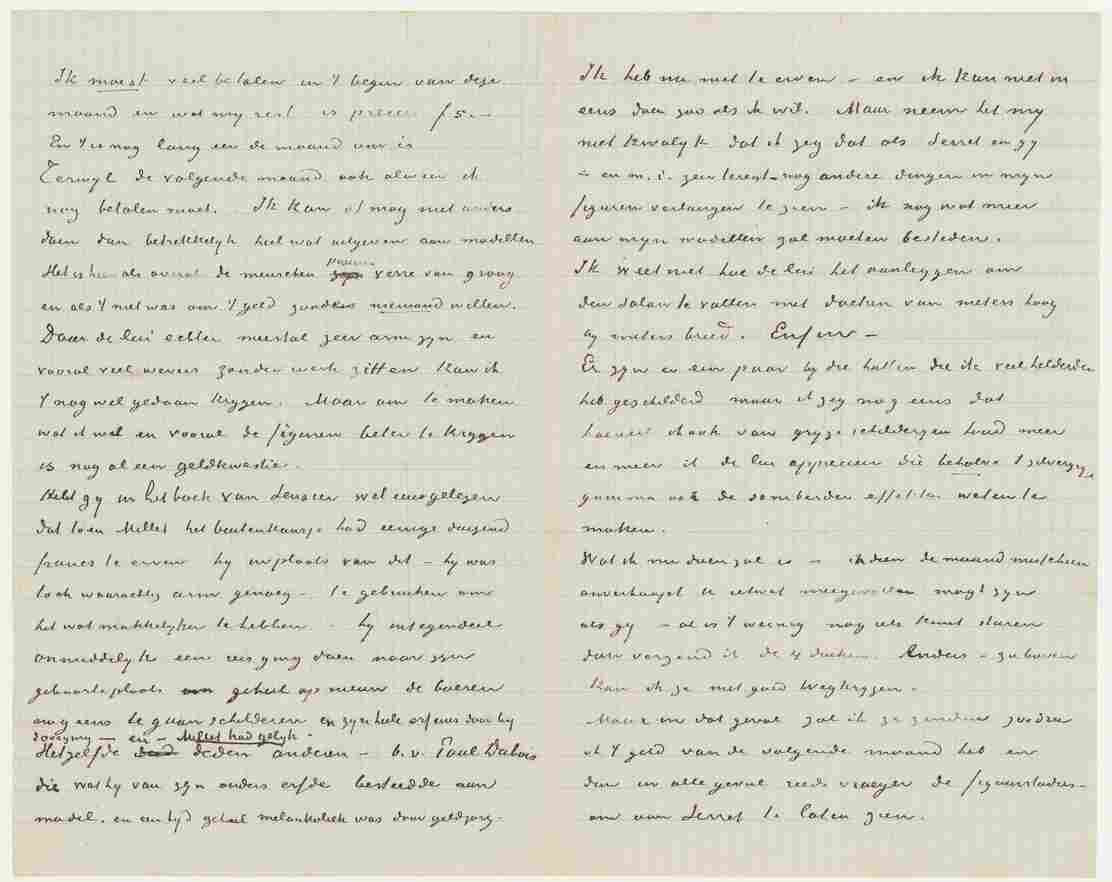 Ik moest veel betalen in 't begin van deze
maand en wat my rest is precies f 5.–
En 't is nog lang eer de maand om is
Terwyl de volgende maand ook alweer ik
nog betalen moet. Ik kan of mag niet anders
doen dan betrekkelyk heel wat uitgeven aan modellen
Het is hier als overal de menschen poseeren verre van graag
en als 't niet was om 't geld zoudt niemand willen.
Daar de lui echter meestal zeer arm zyn en
vooral veel wevers zonder werk zitten kan ik
't nog wel gedaan krygen. Maar om te maken
wat ik wil en vooral de figuren beter te krygen
is nog al een geldkwestie.
Hebt gy in het boek van Sensier wel eens gelezen
dat toen Millet het buitenkansje had eenige duizend
francs te erven hy in plaats van dit – hy was
toch waarachtig arm genoeg – te gebruiken om
het wat makkelyker te hebben – hy integendeel
onmiddelyk een reis ging doen naar zyn
geboorteplaats geheel op nieuw de boeren
nog eens te gaan schilderen en zyn heele erfenis door hy
doorging – en – Millet had gelyk.
Hetzelfde deden anderen – b.v. Paul Dubois
die wat hy van zyn ouders erfde besteedde aan
model. en een tyd geheel melankoliek was door geldzorg.
Ik heb nu niet te erven – en ik kan niet in
eens doen zoo als ik wil. Maar neem het my
niet kwalyk dat ik zeg dat als Serret en gy
– en m.i. zeer teregt – nog andere dingen in myn
figuren verlangen te zien – ik nog wat meer
aan myn modellen zal moeten besteden.
Ik weet niet hoe de lui het aanleggen om
den Salon te vullen met doeken van meters hoog
by meters breed. Enfin –
Er zyn er een paar by die hutten die ik veel helderder
heb geschilderd maar ik zeg nog eens dat
hoezeer ik ook van gryze schilderyen houd meer
en meer ik de lui apprecieer die behalve 't zilvergryze
gamma ook de somberder effekten weten te
maken.
Wat ik nu doen zal is – indien de maand misschien
onverhoopt te ietwat meegevallen mogt zyn
als gy – al is 't weinig nog iets kunt sturen
dan verzend ik de 4 doeken. Anders – ze boeren
kan ik ze niet goed wegkrygen.
Maar in dat geval zal ik ze zenden zoodra
ik 't geld van de volgende maand heb en
dan in alle geval reeds vroeger de figuurstudies–
om aan Serret te laten zien.